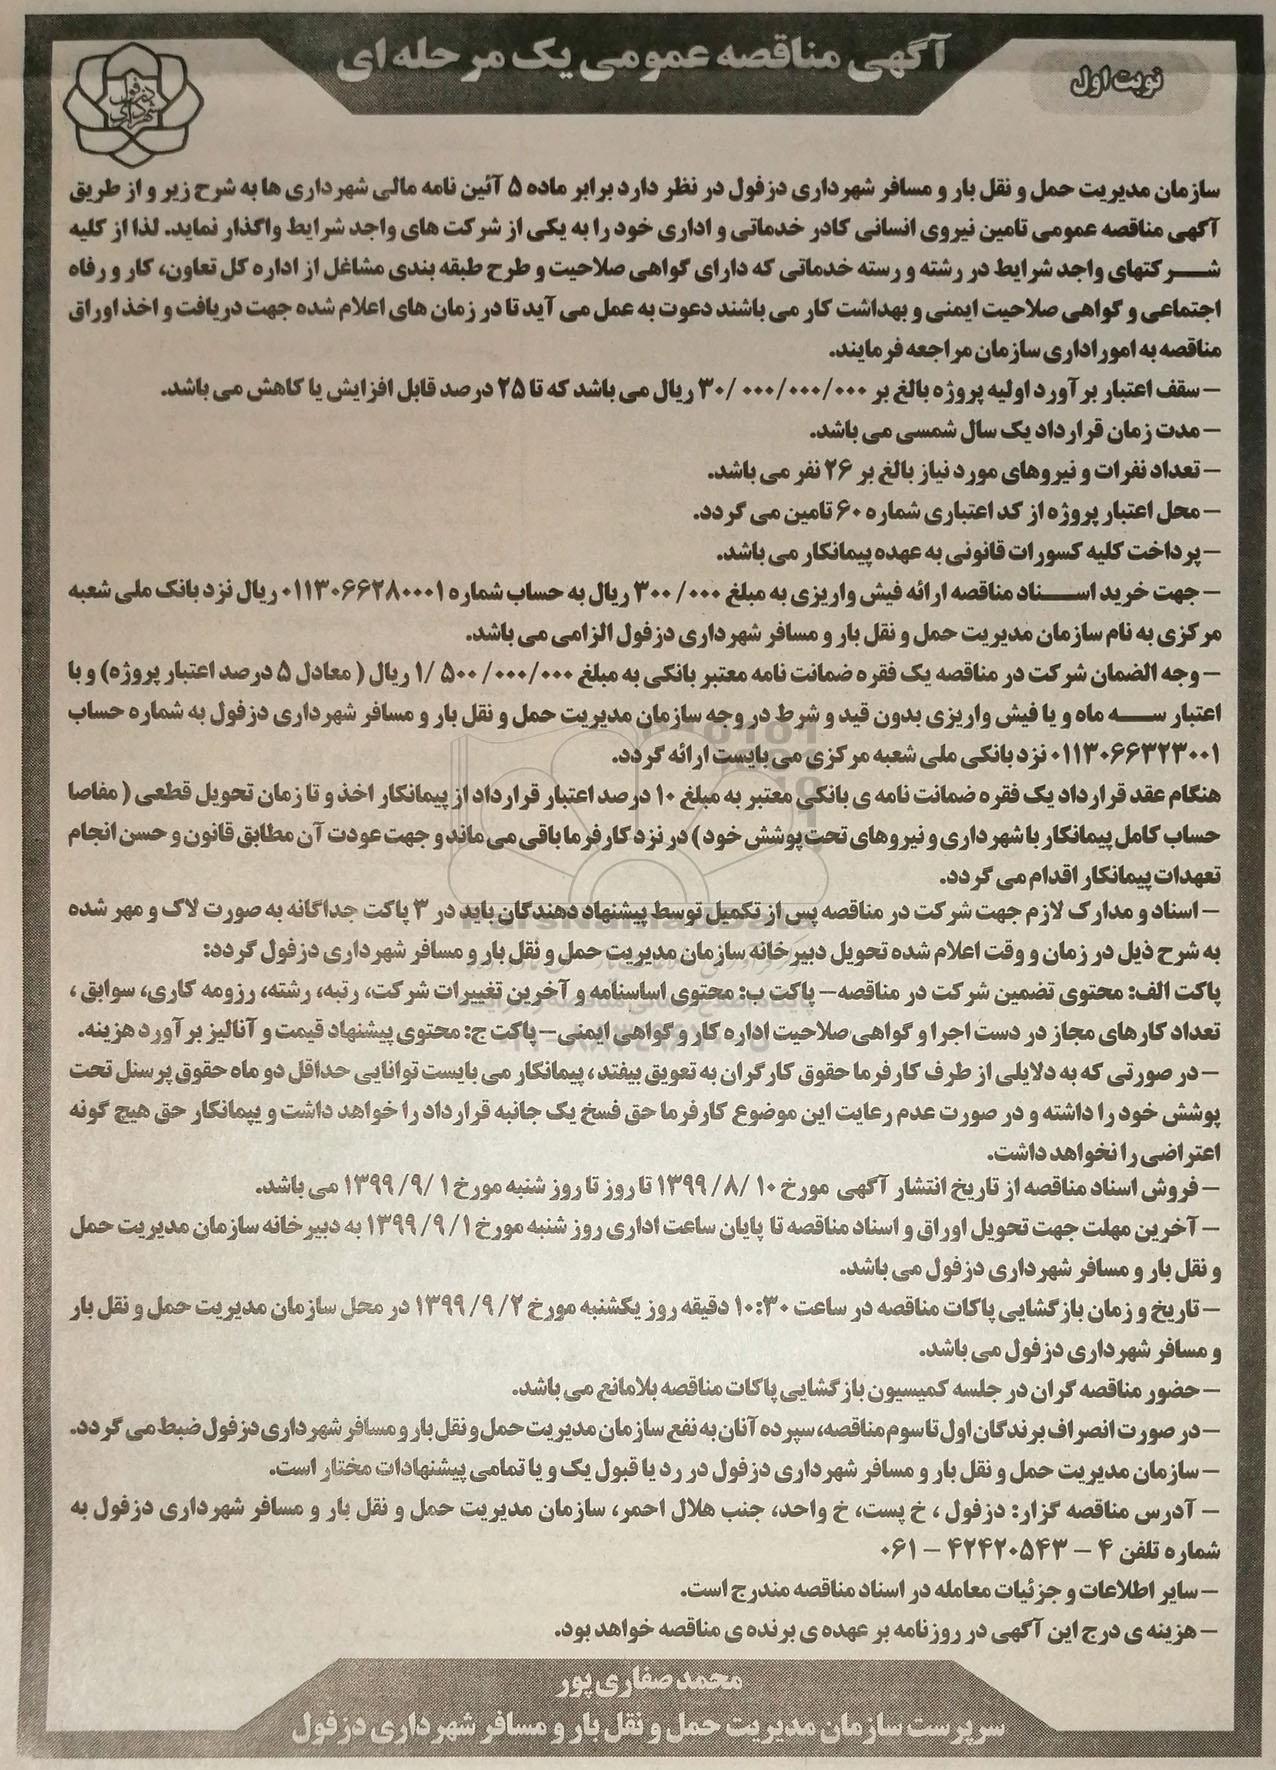 آگهی مناقصه عمومی یک مرحله ای
نوبت اول
شهرداری دزفول
سازمان مدیریت حمل و نقل بار و مسافر شهرداری دزفول در نظر دارد برابر ماده ۵ آئین نامه مالی شهرداری ها به شرح زیر و از طریق
آگهی مناقصه عمومی تامین نیروی انسانی کادر خدماتی و اداری خود را به یکی از شرکت های واجد شرایط واگذار نماید. لذا از کلیه
شرکتهای واجد شرایط در رشته و رسته خدماتی که دارای گواهی صلاحیت و طرح طبقه بندی مشاغل از اداره کل تعاون، کار و رفاه
اجتماعی و گواهی صلاحیت ایمنی و بهداشت کار می باشند دعوت به عمل می آید تا در زمان های اعلام شده جهت دریافت و اخذ اوراق
مناقصه به امور اداری سازمان مراجعه فرمایند.
- سقف اعتبار برآورد اولیه پروژه بالغ بر ۳۰/۰۰۰/۰۰۰/۰۰۰ ریال می باشد که تا ۲۵ درصد قابل افزایش یا کاهش می باشد.
- مدت زمان قرارداد یک سال شمسی می باشد.
- تعداد نفرات و نیروهای مورد نیاز بالغ بر ۲۶ نفر می باشد.
- محل اعتبار پروژه از کد اعتباری شماره ۶۰ تامین می گردد.
- پرداخت کلیه کسورات قانونی به عهده پیمانکار می باشد.
- جهت خرید اسناد مناقصه ارائه فیش واریزی به مبلغ ۳۰۰/۰۰۰ ریال به حساب شماره ۰۱۱۳۰۶۶۲۸۰۰۰۱ ریال نزد بانک ملی شعبه
مرکزی به نام سازمان مدیریت حمل و نقل بار و مسافر شهرداری دزفول الزامی می باشد.
- وجه الضمان شرکت در مناقصه یک فقره ضمانت نامه معتبر بانکی به مبلغ ۱/۵۰۰/۰۰۰/۰۰۰ ریال ( معادل ۵ درصد اعتبار پروژه) و با
اعتبار سه ماه و یا فیش واریزی بدون قید و شرط در وجه سازمان مدیریت حمل و نقل بار و مسافر شهرداری دزفول به شماره حساب
۰۱۱۳۰۶۶۳۲۳۰۰۱ نزد بانکی ملی شعبه مرکزی می بایست ارائه گردد.
هنگام عقد قرارداد یک فقره ضمانت نامه ی بانکی معتبر به مبلغ ۱۰ درصد اعتبار قرارداد از پیمانکار اخذ و تا زمان تحویل قطعی ( مفاصا
حساب کامل پیمانکار با شهرداری و نیروهای تحت پوشش خود ) در نزد کارفرما باقی می ماند و جهت عودت آن مطابق قانون و حسن انجام
تعهدات پیمانکار اقدام می گردد.
- اسناد و مدارک لازم جهت شرکت در مناقصه پس از تکمیل توسط پیشنهاد دهندگان باید در ۳ پاکت جداگانه به صورت لاک و مهر شده
به شرح ذیل در زمان و وقت اعلام شده تحویل دبیرخانه سازمان مدیریت حمل و نقل بار و مسافر شهرداری دزفول گردد:
پاکت الف: محتوی تضمین شرکت در مناقصه- پاکت ب: محتوی اساسنامه و آخرین تغییرات شرکت، رتبه، رشته، رزومه کاری، سوابق ،
تعداد کارهای مجاز در دست اجرا و گواهی صلاحیت اداره کار و گواهی ایمنی- پاکت ج: محتوی پیشنهاد قیمت و آنالیز برآورد هزینه.
- در صورتی که به دلایلی از طرف کارفرما حقوق کارگران به تعویق بیفتد ، پیمانکار می بایست توانایی حداقل دو ماه حقوق پرسنل تحت
پوشش خود را داشته و در صورت عدم رعایت این موضوع کارفرما حق فسخ یک جانبه قرارداد را خواهد داشت و پیمانکار حق هیچ گونه
اعتراضی را نخواهد داشت.
- فروش اسناد مناقصه از تاریخ انتشار آگهی مورخ ۱۳۹۹/۸/۱۰ تا روز تا روز شنبه مورخ ۱۳۹۹/۹/۱ می باشد.
- آخرین مهلت جهت تحویل اوراق و اسناد مناقصه تا پایان ساعت اداری روز شنبه مورخ ۱۳۹۹/۹/۱ به دبیرخانه سازمان مدیریت حمل
و نقل بار و مسافر شهرداری دزفول می باشد.
- تاریخ و زمان بازگشایی پاکات مناقصه در ساعت ۱۰:۳۰ دقیقه روز یکشنبه مورخ ۱۳۹۹/۹/۲ در محل سازمان مدیریت حمل و نقل بار
و مسافر شهرداری دزفول می باشد.
- حضور مناقصه گران در جلسه کمیسیون بازگشایی پاکات مناقصه بلامانع می باشد.
- در صورت انصراف برندگان اول تا سوم مناقصه، سپرده آنان به نفع سازمان مدیریت حمل و نقل بار و مسافر شهرداری دزفول ضبط می گردد.
- سازمان مدیریت حمل و نقل بار و مسافر شهرداری دزفول در رد یا قبول یک و یا تمامی پیشنهادات مختار است.
- آدرس مناقصه گزار: دزفول ، خ پست، خ واحد، جنب هلال احمر، سازمان مدیریت حمل و نقل بار و مسافر شهرداری دزفول به
شماره تلفن ۴ - ۴۲۴۲۰۵۴۳ - ۰۶۱
- سایر اطلاعات و جزئیات معامله در اسناد مناقصه مندرج است.
- هزینه ی درج این آگهی در روزنامه بر عهده ی برنده ی مناقصه خواهد بود.
محمد صفاری پور
سرپرست سازمان مدیریت حمل و نقل بار و مسافر شهرداری دزفول